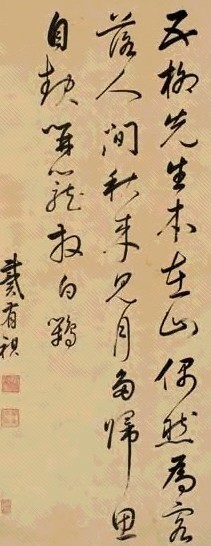 五柳先生本在山偶然為客
落人間秋来見月多歸思
自起開籠放白鷴
戴有祺